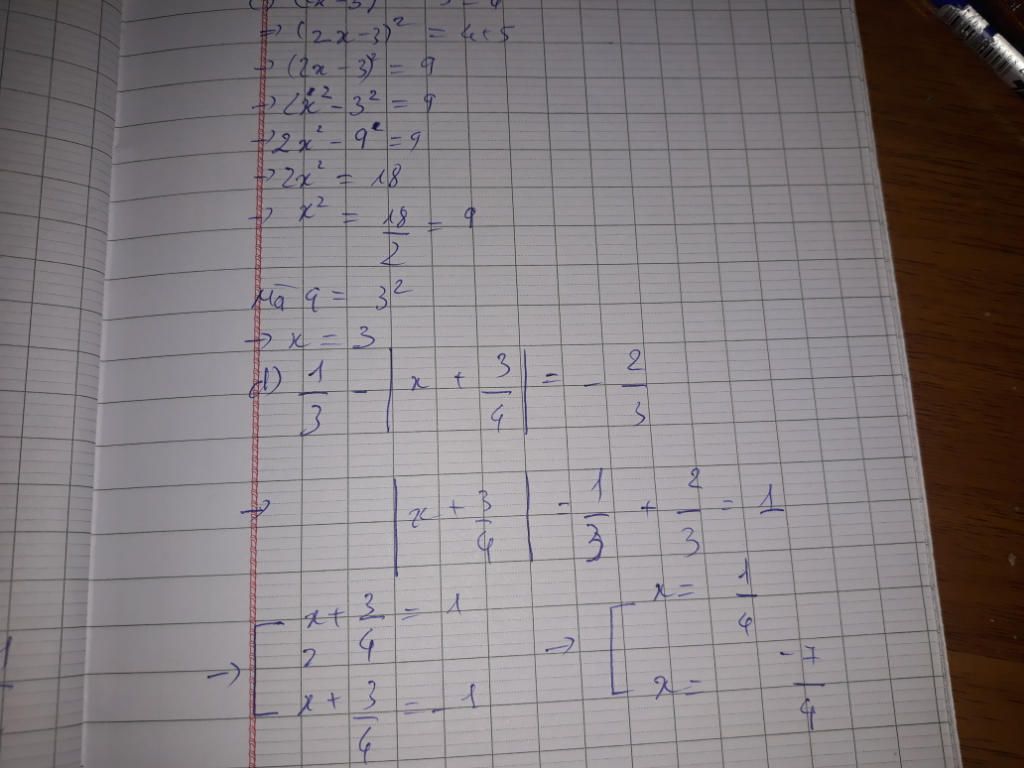 → (2x-3)² = 4+5
→ (2x-3)² = 9
→ 2x² - 3² = 9
→ 2x² - 9 = 9
→ 2x² = 18
→ x² = 18/2 = 9
Mà 9 = 3²
→ x = 3
d) 1/3 - |x + 3/4| = - 2/3
→ |x + 3/4| = 1/3 + 2/3 = 1
→ [ x + 3/4 = 1 → [ x = 1/4
x + 3/4 = -1 x = -7/4